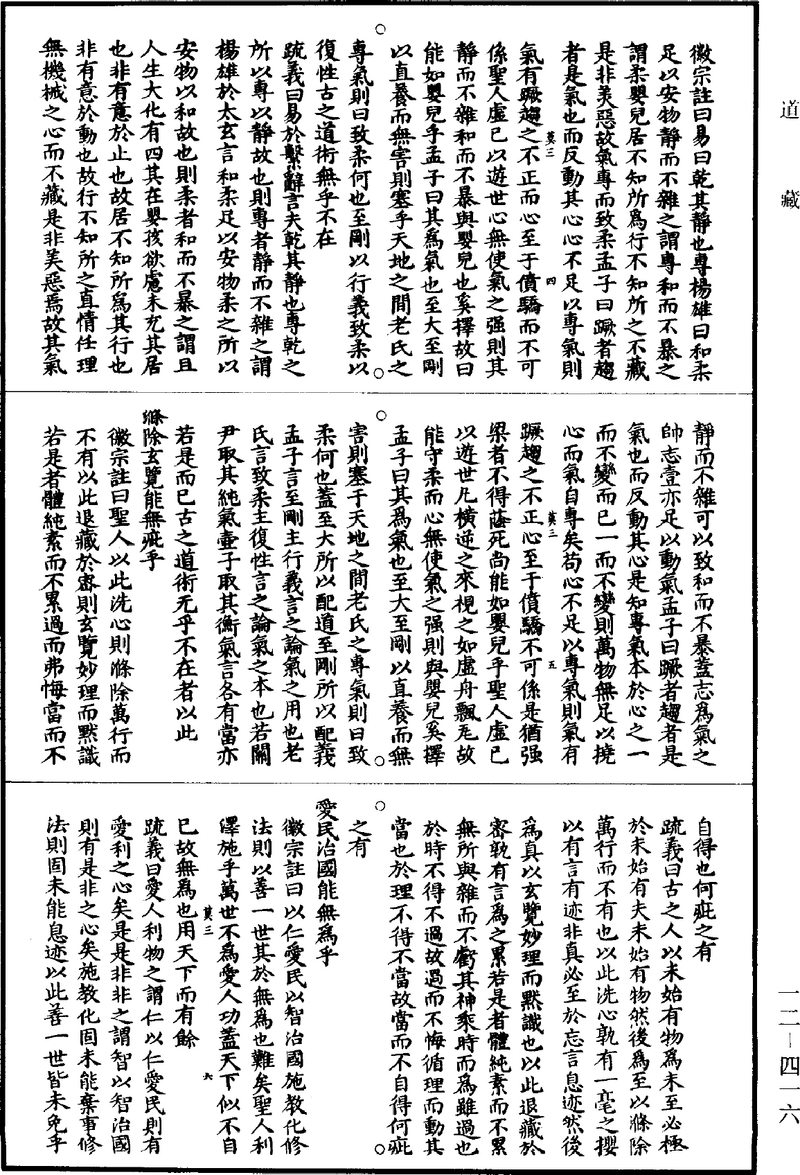 道藏
徽宗註曰易曰乾其靜也專楊雄曰和柔
足以安物靜而不雜之謂專和而不暴之
謂柔嬰兒居不知所為行不知所之不藏
是非美惡故氣專而致柔孟子曰蹶者趨
者是氣也而反動其心心不足以專氣則
氣有蹶趨之不正而心至于僨驕而不可
係聖人虛己以遊世心無使氣之强則其
靜而不雜和而不暴與嬰兒也奚擇故曰
能如嬰兒乎孟子曰其為氣也至大至剛
以直養而無害則塞乎天地之間老氏之
專氣則曰致柔何也至剛以行義致柔以
復性古之道術無乎不在
疏義曰易於繫辭言夫乾其靜也專乾之
所以專以靜故也則專者靜而不雜之謂
楊雄於太玄言和柔足以安物柔之所以
安物以和故也則柔者和而不暴之謂且
人生大化有四其在嬰孩欲慮未充其居
也非有意於止也故居不知所為其行也
非有意於動也故行不知所之直情任理
無機械之心而不藏是非美惡焉故其氣
莫三
四
靜而不雜可以致和而不暴蓋志為氣之
帥志壹亦足以動氣孟子曰蹶者趨者是
氣也而反動其心是知專氣本於心之一
而不變而已一而不變則萬物無足以撓
心而氣自專矣苟心不足以專氣則氣有
蹶趨之不正心至于僨驕不可係是猶强
梁者不得薩死尚能如嬰兒乎聖人虛己
以遊世凡橫逆之來視之如虛舟飄瓦故
能守柔而心無使氣之强則與嬰兒奚擇
孟子曰其為氣也至大至剛以直養而無
害則塞于天地之間老氏之專氣則曰致
柔何也蓋至大所以配道至剛所以配義
孟子言至剛主行義言之論氣之用也老
氏言致柔主復性言之論氣之本也若關
尹取其純氣壺子取其衡氣言各有當亦
若是而已古之道術无乎不在者以此
滌除玄覽能無疵乎
徽宗註曰聖人以此洗心則滌除萬行而
不有以此退藏於密則玄覽妙理而默識
若是者體純素而不累過而弗悔當而不
莫三
五
自得也何疵之有
疏義曰古之人以未始有物為未至必極
於未始有夫未始有物然後為至以滌除
萬行而不有也以此洗心孰有一毫之攖
以有言有迹非真必至於忘言息迹然後
為真以玄覽妙理而默識也以此退藏於
密孰有言為之累若是者體純素而不累
無所與雜而不虧其神乘時而為雖過也
於時不得不過故過而不悔循理而動其
當也於理不得不當故當而不自得何疵
之有
愛民治國能無為乎
徽宗註曰以仁愛民以智治國施教化修
法則以善一世其於無為也難矣聖人利
澤施乎萬世不為愛人功蓋天下似不自
已故無為也用天下而有餘
疏義曰愛人利物之謂仁以仁愛民則有
愛利之心矣是是非非之謂智以智治國
則有是非之心矣施教化固未能棄事修
法則固未能息迹以此善一世皆未免乎
莫三
六
一二—四一六